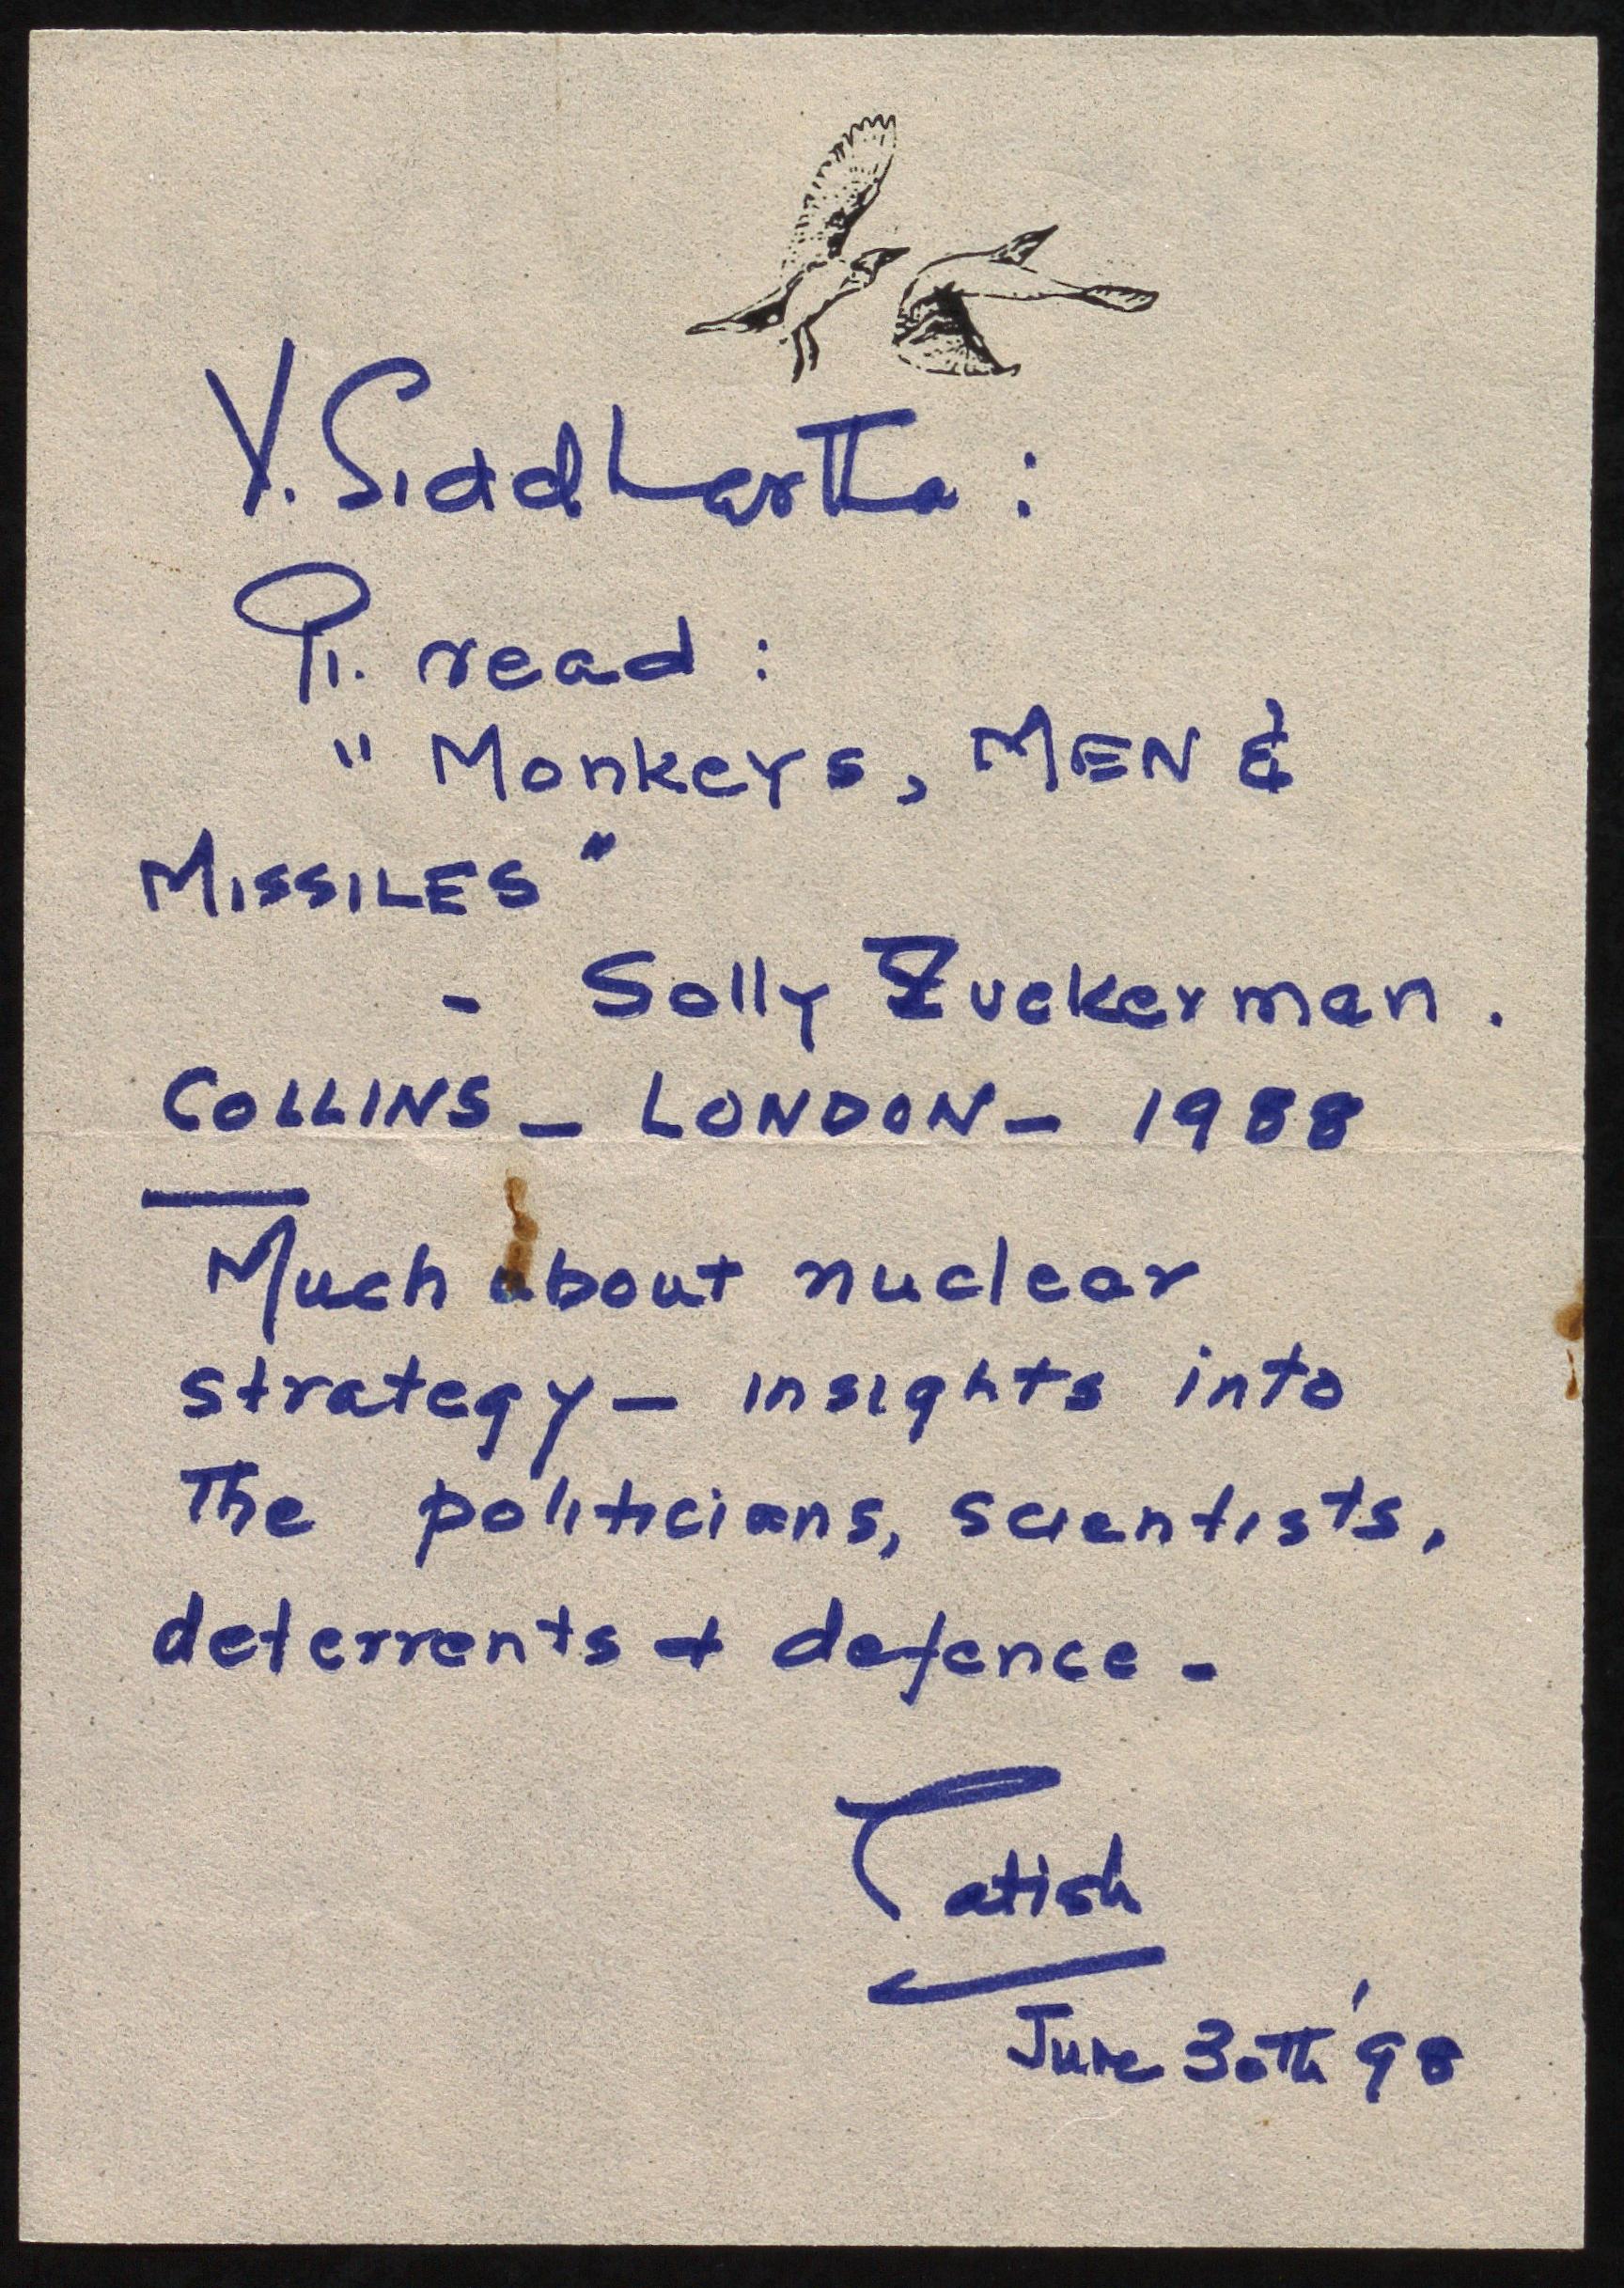 V. Siddhartha :
Pl. read :
" Monkeys, MEN &
MISSILES "
- Solly Zuckerman .
COLLINS - LONDON - 1988
Much about nuclear
strategy - insights into
The politicians, scientists,
deterrents + defence -
Satish
June 30th '98